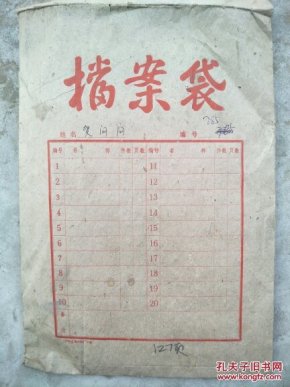 档案袋
姓名 编号
编号 名 称 件数 页数 编号 名 称 件数 页数
1 11
2 12
3 13
4 14
5 15
6 16
7 17
8 18
9 19
10 20
127页
孔夫子旧书网